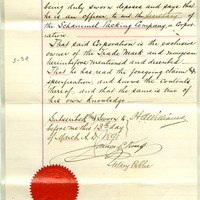 being duly sworn deposes and says that
he is an officer to wit the Secretary of
the Schammel Packing Company, a Corpor-
ation
That said Corporation is the exclusive
owner of the Trade Mark and
hereinbefore mentioned and described
That he has read the foregoing claim &
specification, and knows the contents
thereof, and that the same is true of
his own knowledge
Subscribed & Sworn to
before me this 13th day
of March A.D. 1891
Notary Public